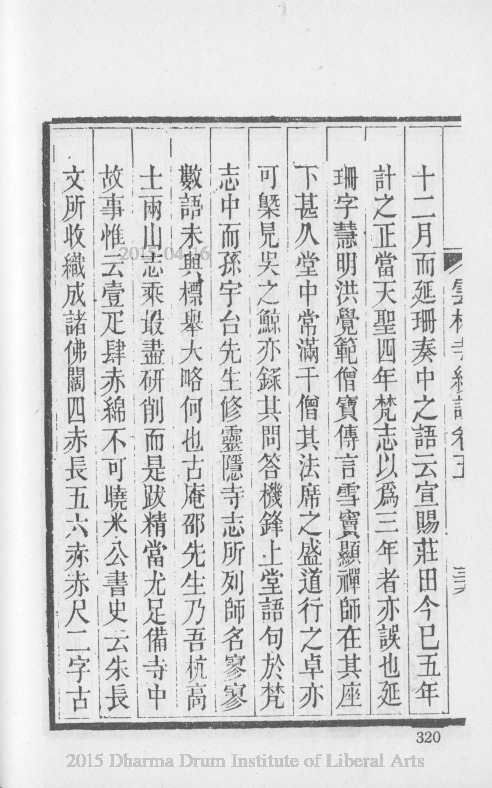 十二月而延珊奏中之語云宣賜莊田今已五年
計之正當天聖四年梵志以爲三年者亦誤也延
珊字慧明洪覺範僧寶傳言雪竇顯禪師在其座
下甚久堂中常滿千僧其法席之盛道行之卓亦
可槩見吳之鯨亦錄其問答機鋒上堂語句於梵
志中而孫宇台先生修靈隱寺志所列師名寥寥
數語未與標舉大略何也古庵邵先生乃吾杭高
士兩山志乘最盡研削而是跋精當尤足備寺中
故事惟云壹疋肆赤綿不可曉米公書史云朱長
文所收織成諸佛闊四赤長五六赤赤尺二字古
320
2015.04.16
2015 Dharma Drum Institute of Liberal Arts